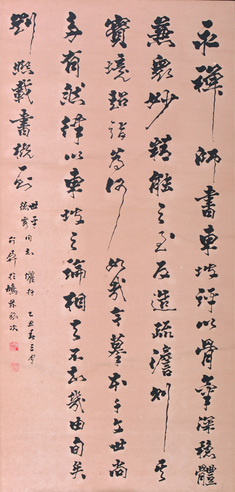 永禪師書東坡評以骨氣深穩體
兼眾妙精能之至反造疏澹則其
實境超詣為何如哉今摹本千文世尚
多有然律以東坡之論相去不知幾由旬矣
劉熙載書概
同志